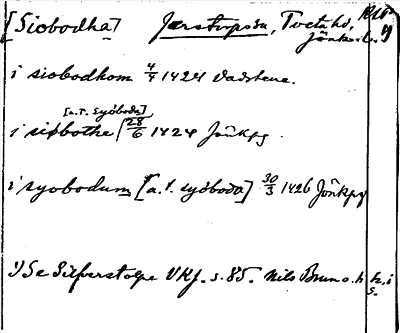 [Siobodha] Järstorps sn, Tveta hd,
Jönk. l.
i siobodhom 4/9 1424 Vadstena.
[a.t. Syöboda]
i siobothe 28/6 1424 Jönkpg.
i syobodum [a.t. syöboda] 30/3 1426 Jönkpg
1) Se Silfverstolpe VKJ. s. 85. Nils Bruns. h h. i
s.